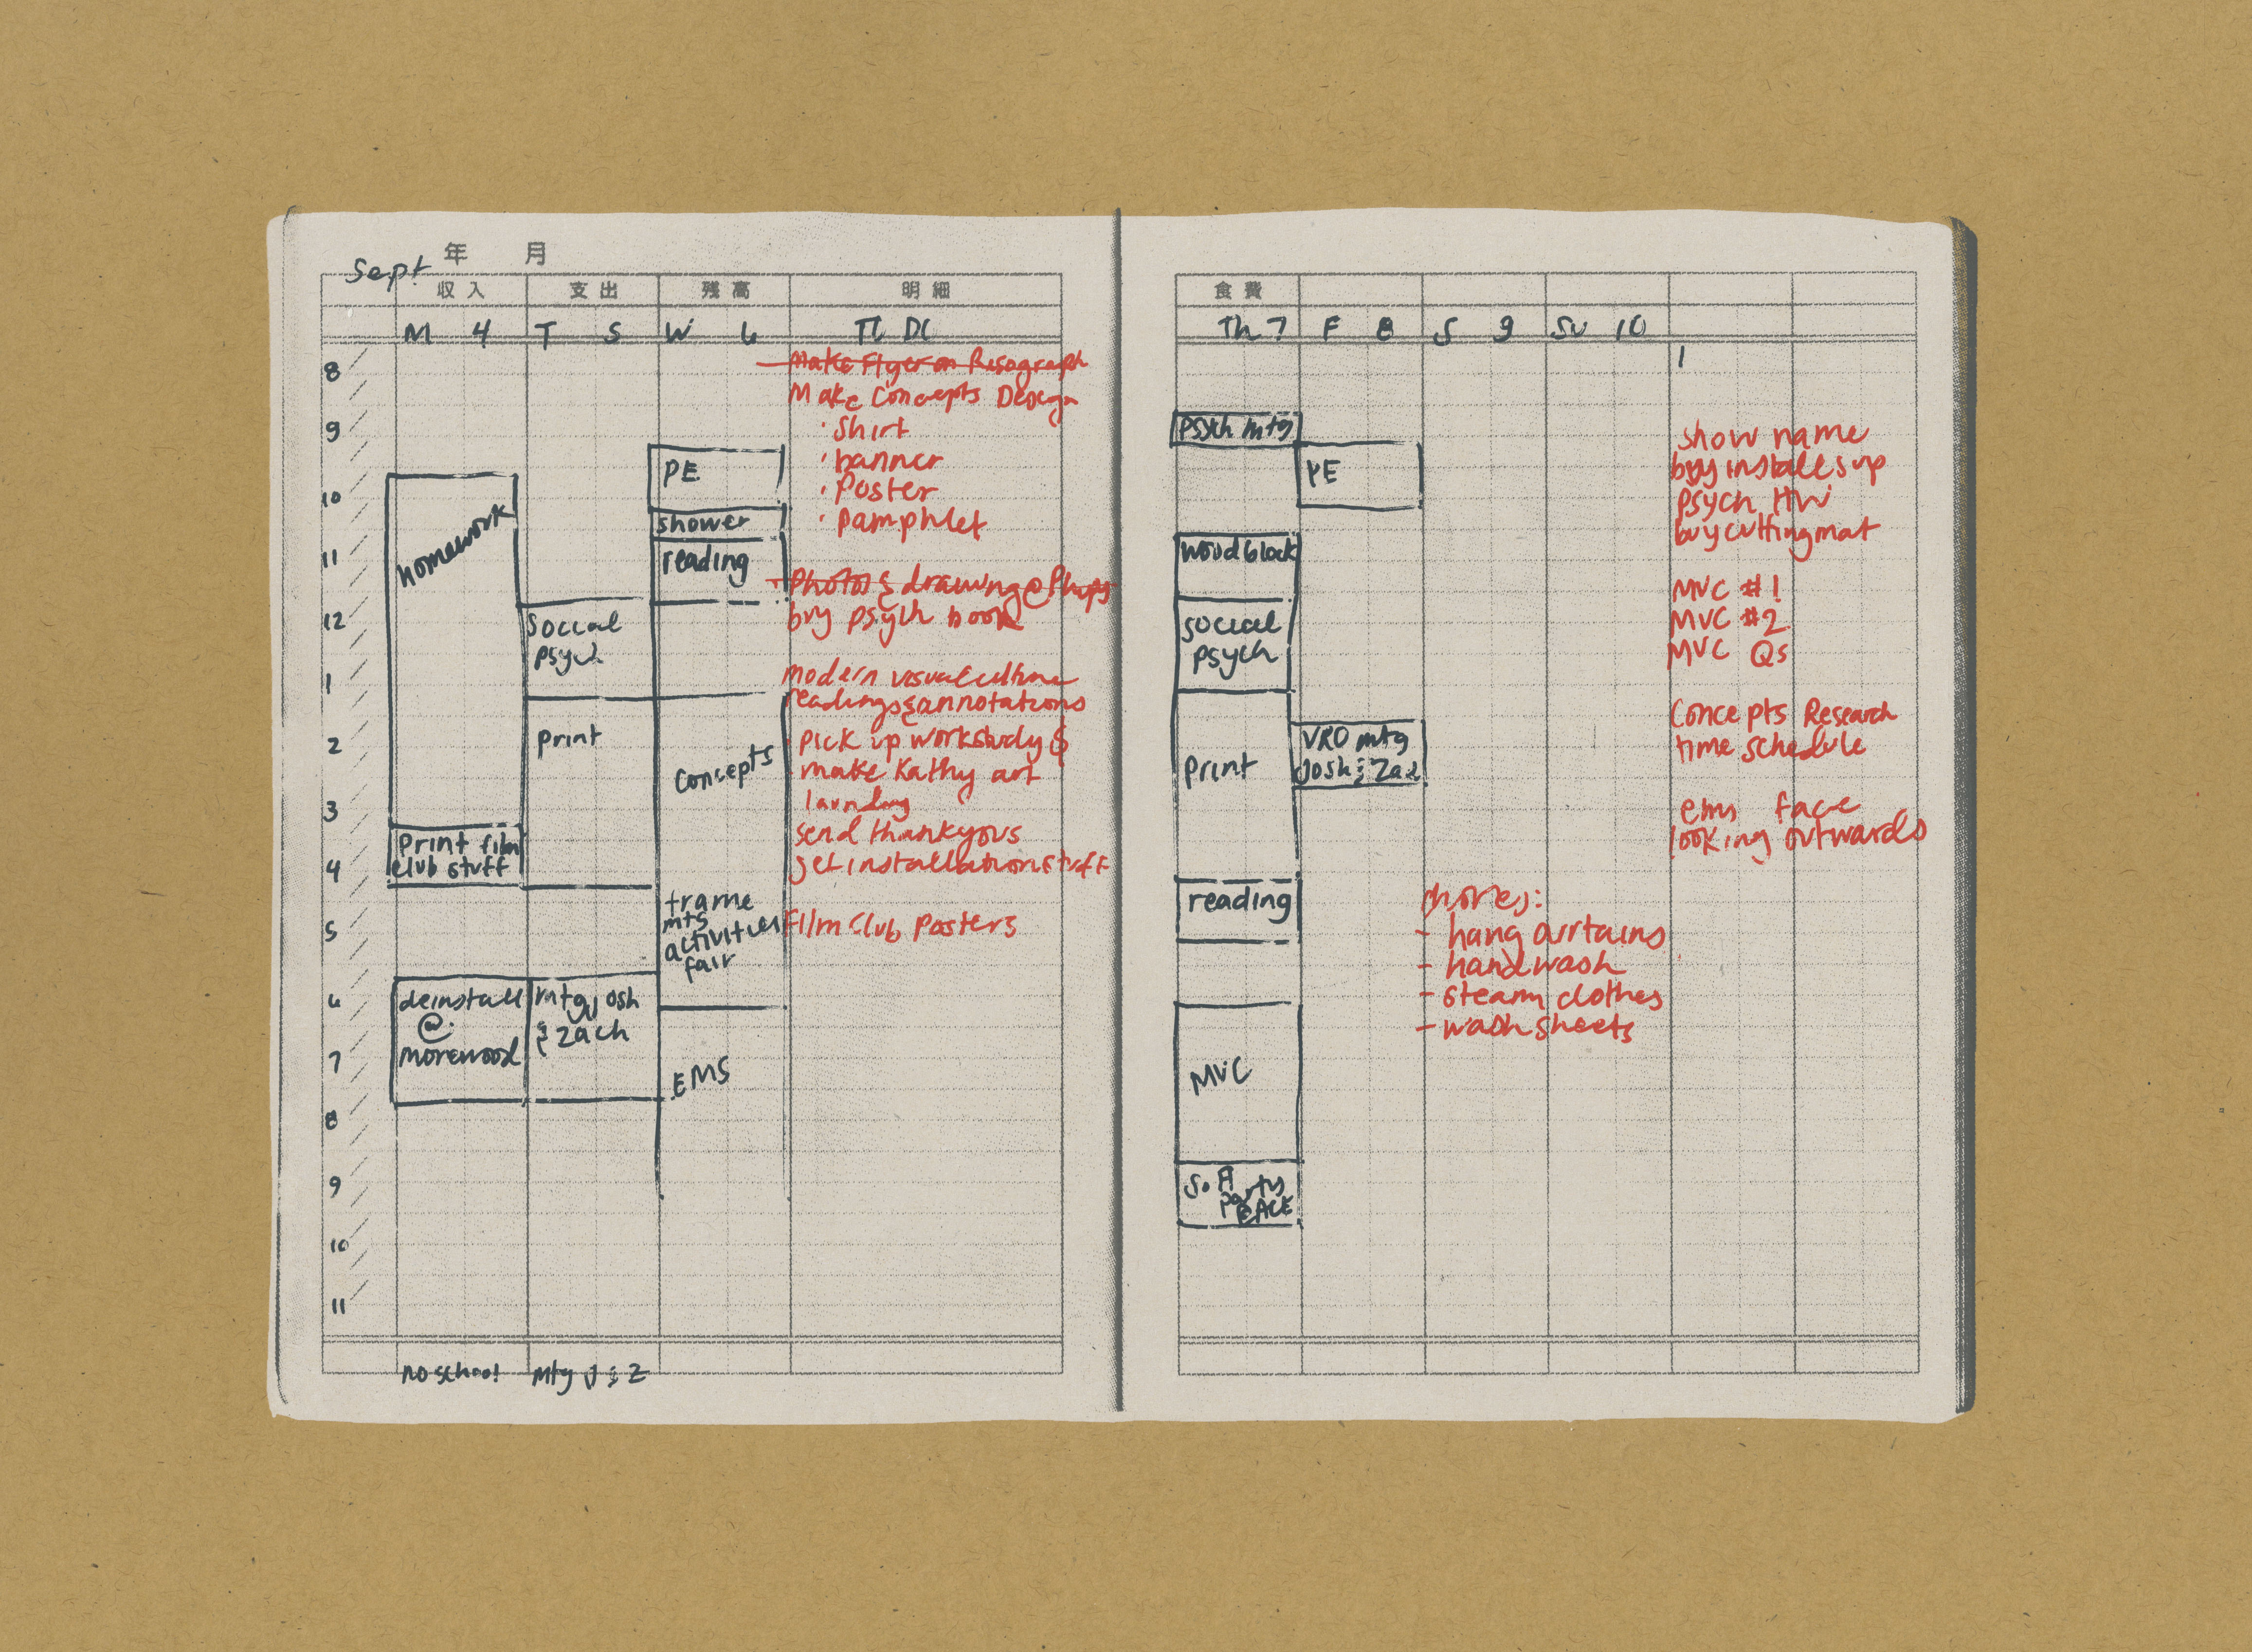 Sept 年 月
収入 支出 残高 明細
M 4 T 5 W 6
8
9
10
11
12
1
2
3
4
5
6
7
8
9
10
11
homework
Print film
club stuff
deinstall
@
morewood
no school
social
psych
Print
mtg Josh
& Zach
mtg J & Z
PE
shower
reading
Concepts
frame
mts
activities
fair
EMS
Make Flyer on Risograph
Make Concepts Design
· Shirt
· banner
· Poster
· Pamphlet
Photos & drawing @ Phipps
buy psych book
modern visual culture
readings & annotations
· Pick up workstudy $
· make Kathy art
laundry
send thankyous
get installation stuff
Film Club Posters
食費
Th 7 F 8 S 9 Su 10
psych mtg
woodblock
social
psych
print
reading
MVC
SoA
party
@ACE
PE
VRO mtg
Josh & Zac
chores:
- hang curtains
- handwash
- steam clothes
- wash sheets
show name
buy install sup
psych HW
buy cutting mat
MVC #1
MVC #2
MVC Qs
Concepts Research
time schedule
ems face
looking outwards